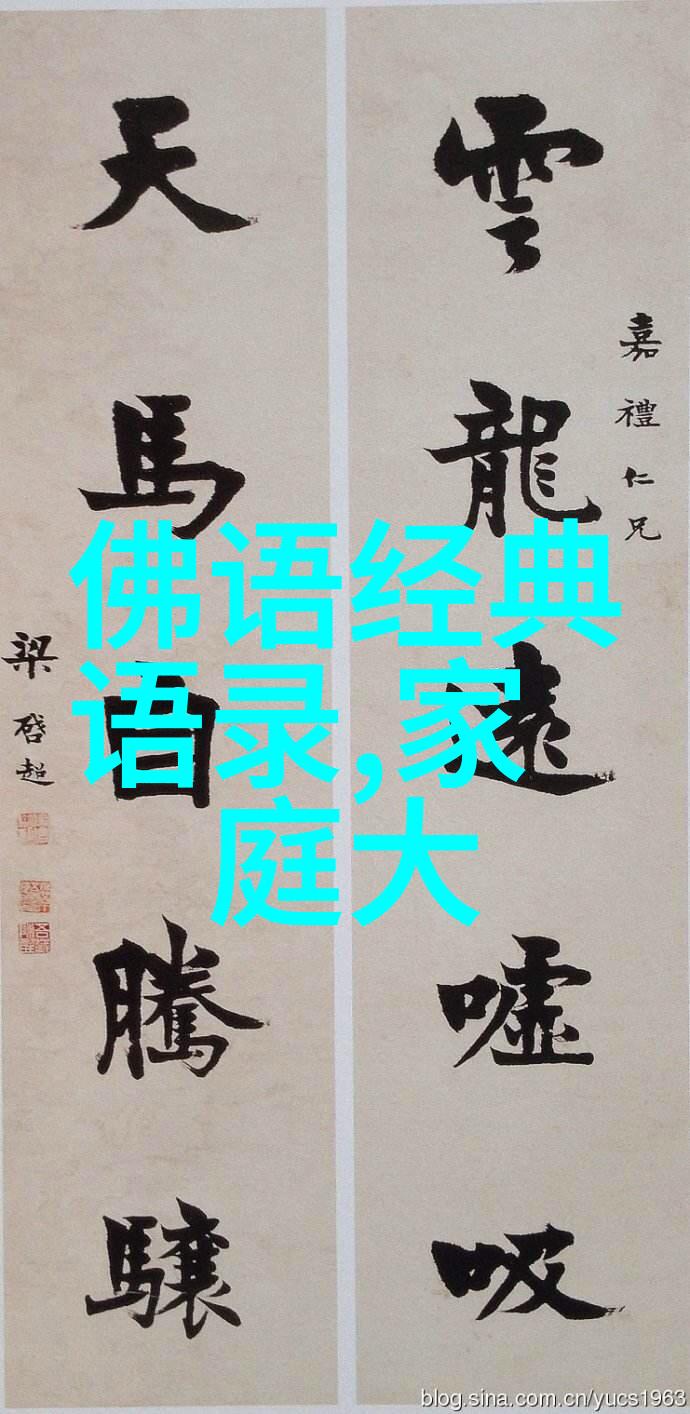 雲龍遠噓吸
嘉禮仁兄
天馬自騰驤
梁啓超
佛语经典
语录,家
庭大
blog.sina.com.cn/yucs1963